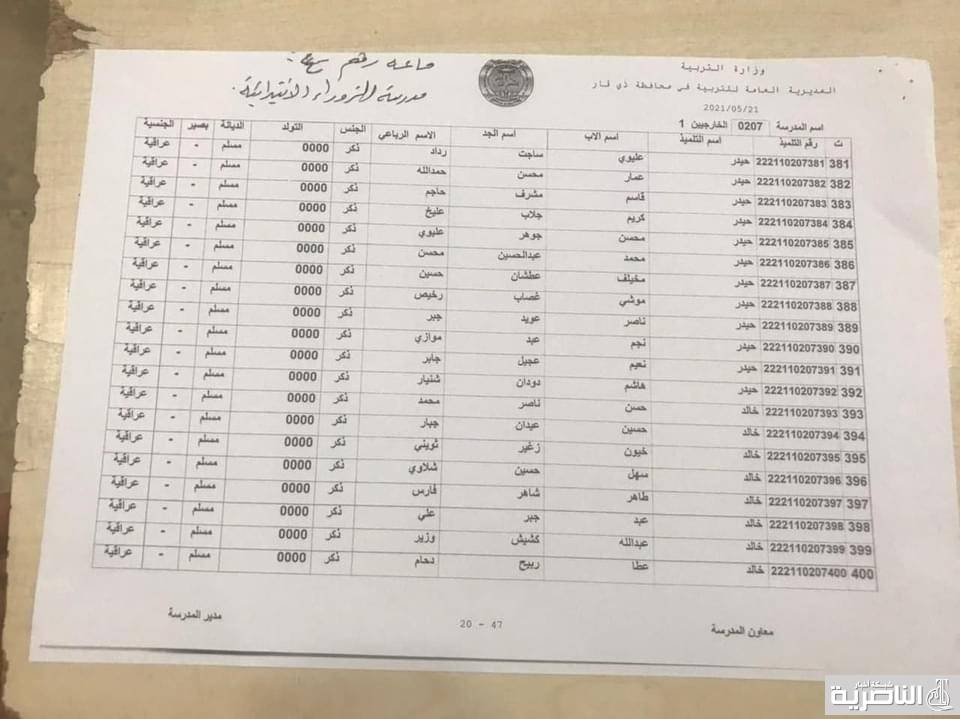 وزارة التربية
المديرية العامة للتربية في محافظة ذي قار
2021/05/21
قاعة رقم
مدرسة الزوراء الابتدائية
اسم المدرسة 0207 الخارجيين 1
ت رقم التلميذ اسم التلميذ اسم الاب اسم الجد الاسم الرباعي الجنس التولد الديانة بصير الجنسية
381 222110207381 حيدر عليوي ساجت رداد ذكر 0000 مسلم - عراقية
382 222110207382 حيدر عمار محسن حمدالله ذكر 0000 مسلم - عراقية
383 222110207383 حيدر قاسم مشرف حاجم ذكر 0000 مسلم - عراقية
384 222110207384 حيدر كريم جلاب عليخ ذكر 0000 مسلم - عراقية
385 222110207385 حيدر محسن جوهر عليوي ذكر 0000 مسلم - عراقية
386 222110207386 حيدر محمد عبدالحسين محسن ذكر 0000 مسلم - عراقية
387 222110207387 حيدر مخيلف عطشان حسين ذكر 0000 مسلم - عراقية
388 222110207388 حيدر موشي غصاب رخيص ذكر 0000 مسلم - عراقية
389 222110207389 حيدر ناصر عويد جبر ذكر 0000 مسلم - عراقية
390 222110207390 حيدر نجم عبد موازي ذكر 0000 مسلم - عراقية
391 222110207391 حيدر نعيم عجيل جابر ذكر 0000 مسلم - عراقية
392 222110207392 حيدر هاشم دودان شنيار ذكر 0000 مسلم - عراقية
393 222110207393 خالد حسن ناصر محمد ذكر 0000 مسلم - عراقية
394 222110207394 خالد حسين عيدان جبار ذكر 0000 مسلم - عراقية
395 222110207395 خالد خيون زغير ثويني ذكر 0000 مسلم - عراقية
396 222110207396 خالد سهل حسين شلاوي ذكر 0000 مسلم - عراقية
397 222110207397 خالد طاهر شاهر فارس ذكر 0000 مسلم - عراقية
398 222110207398 خالد عبد جبر علي ذكر 0000 مسلم - عراقية
399 222110207399 خالد عبدالله كشيش وزير ذكر 0000 مسلم - عراقية
400 222110207400 خالد عطا ربيح دحام ذكر 0000 مسلم - عراقية
معاون المدرسة
20 - 47
مدير المدرسة
شبكة أخبار
الناصرية